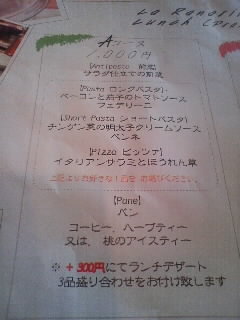 La Ranarita
Lunch
Aコース
1,000円
【Antipasto 前菜】
サラダ仕立ての前菜
【Pasta ロングパスタ】
ベーコンと茄子のトマトソース
フェデリーニ
【Short Pasta ショートパスタ】
チンゲン菜の明太子クリームソース
ペンネ
【Pizza ピッツァ】
イタリアンサラミとほうれん草
上記よりお好きな1品を お選びください。
【Pane】
パン
コーヒー、ハーブティー
又は、桃のアイスティー
※ +300円にてランチデザート
3品盛り合わせをお付け致します